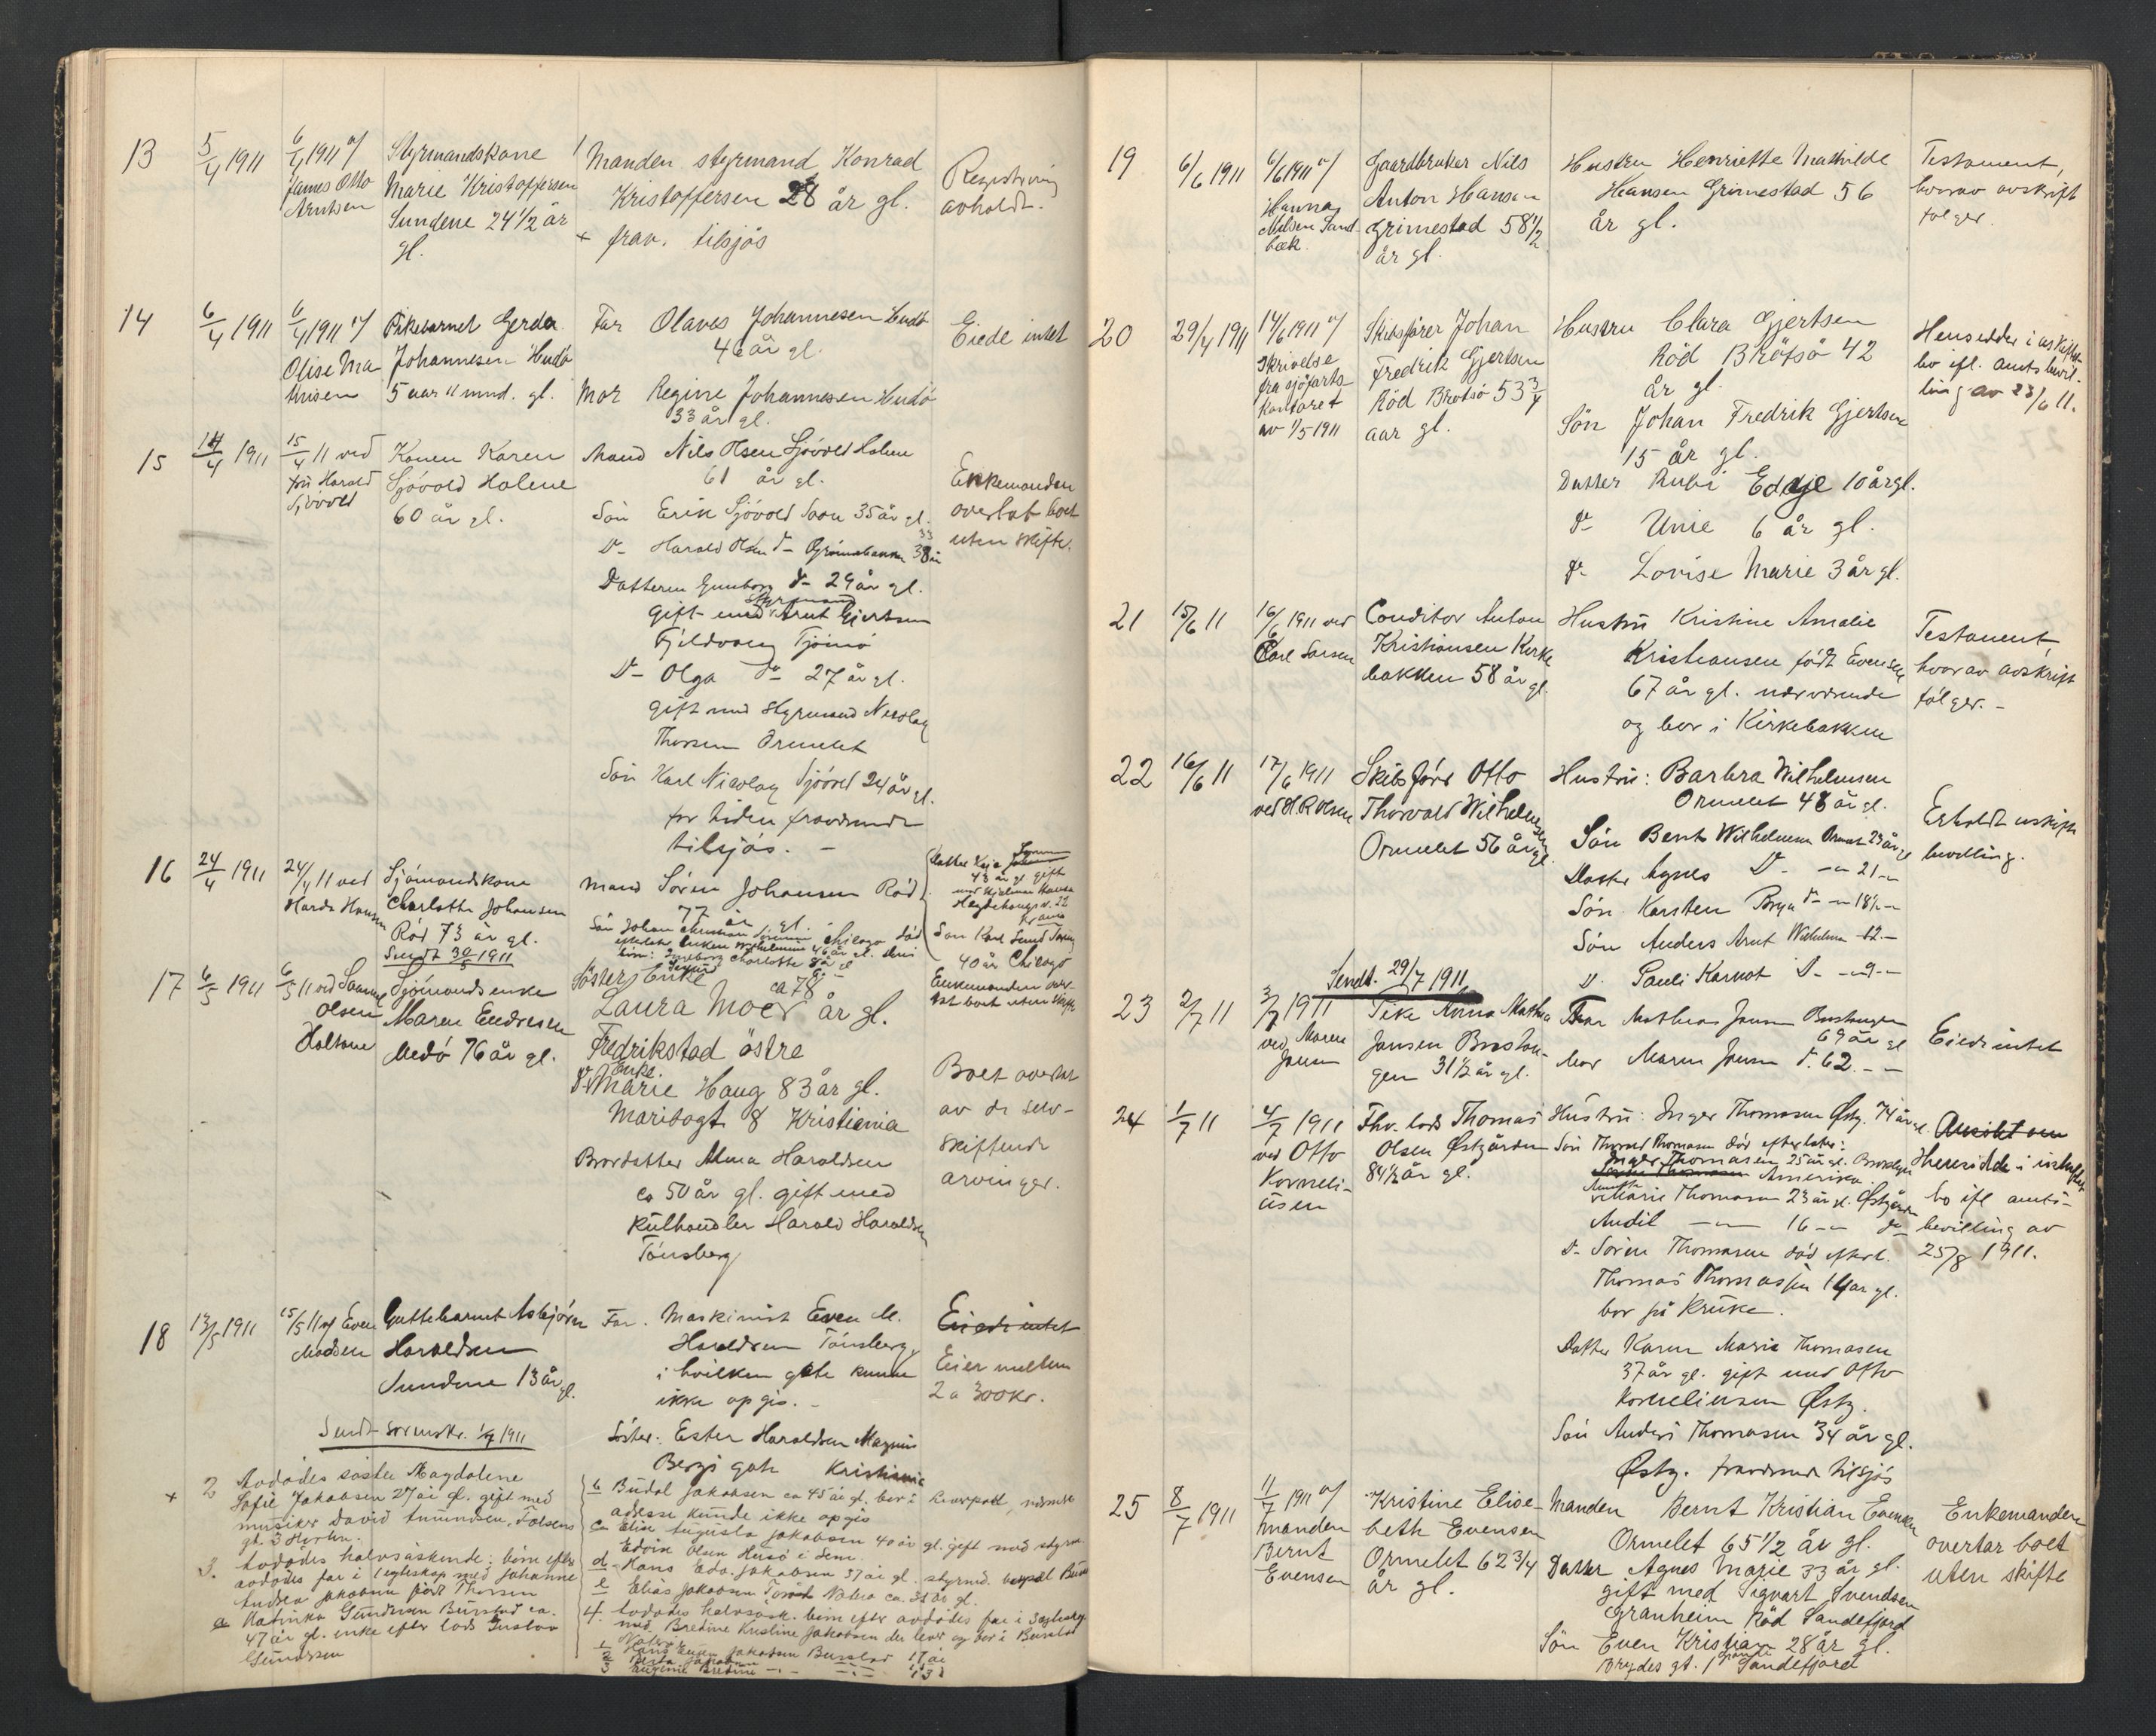 13
5/4 1911
6/4 1911 v/
James Otto
Arntsen
Styrmandskone
Marie Kristoffersen
Sundene 24 1/2 år
gl.
1 Manden styrmand Konrad
Kristoffersen 28 år gl.
+ frav. tilsjøs
Registrering
avholdt.
14
6/4 1911
6/4 1911 v/
Olise Ma
thisen
Pikebarnet Gerda
Johannesen Hudø
5 aar 11 mnd. gl.
Far Olaves Johannesen Hudø
46 år gl.
Mor Regine Johannesen Hudø
33 år gl.
Eiede intet
15
14/4 1911
15/4 11 ved
fru Harald
Sjøvold
Konen Karen
Sjøvold Holene
60 år gl.
Mand Nils Olsen Sjøvold Holene
61 år gl.
Søn Erik Sjøvold 35 år gl.
D- Harald Olsen d- 33
Datteren Gunborg d- 29 år gl.
gift med styrmand Arnt Gjertsen
Fjeldvang Tjømø
D- Olga d- 27 år gl.
gift med styrmand Nicolay
Thorsen Ormelet
Søn Karl Nicolay Sjøvold 24 år gl.
for tiden fraværende
tilsjøs. -
Enkemanden
overlat boet
uten skifte.
16
24/4 1911
24/4 11 ved
Harda Hansen
Sjømandskone
Charlotte Johansen
Rød 73 år gl.
Sendt 30/5 1911
Mand Søren Johansen Rød
77 år gl.
Søn Johan Christian Sørensen Chicago død
efterlater enken Wilhelmine 46 år gl.
Ingeborg Charlotte 8 år gl
Datter Kaja
43 år gl gift
med Hjelmar Hansen
Hegdehaugsv. 22
Kr.ania
Søn Karl
40 år Chicago
Enkemanden over-
lat boet uten skifte
17
6/5 1911
6/5 11 ved Samuel
Olsen
Holtane
Sjømandsenke
Maren Endresen
Medø 76 år gl.
Søsters Enke
Laura Moe ca 78 år gl.
Fredrikstad østre
d- Enke. Marie Haug 83 år gl.
Maribogt 8 Kristiania
Brordatter Alma Haraldsen
ca 50 år gl. gift med
kulhandler Harald Haraldsen
Tønsberg
Boet overtat
av de selv-
skiftende
arvinger.
18
13/5 1911
15/5 11 v/ Even
Madsen
Guttebarnet Asbjørn
Haroldsen
Sundene 13 år
gl.
Far. Maskinist Even M.
Haroldsen Tønsberg,
i hvilken gate kunne
ikke opgis. -
Søster: Ester Haroldsen Magnus
Bergs gate Kristiania
Eiede intet
Eier mellem
2 a 300 kr.
Sendt sorenskr. 1/7 1911
+ 2 Avdødes søster Magdalene
Sofie Jakobsen 27 år gl. gift med
musiker David Amundsen, Falsens
gt. 3 Horten.
3. Avdødes halvsøskende: børn efter
avdødes far i 1 egteskap med Johanne
Andrea Jakobsen født Thorsen
a Katinka Gundersen Burstad ca.
47 år gl. enke efter lods Gustav
Gundersen
b Budal Jakobsen ca 45 år gl. bor i Liverpool, nærmere
adresse kunde ikke opgis
c Elise Augusta Jakobsen 40 år gl. gift med styrm.
Edvin Olsen Husø i Sem.
d Hans Edv. Jakobsen 37 år gl. styrmd.
e Elias Jakobsen
4. Avdødes halvsøsk. børn efter avdødes far i 3 egteskap
med Bredine Kristine Jakobsen der lever og bor i Burstad
1 Hans Even Jakobsen Burstad 17 år
2
3 Eugenie Bredine
19
6/6 1911
6/6 1911 v/
Hanna
Nilsen Sand-
bæk
Gaardbruker Nils
Anton Hansen
Grimestad 58 1/2
år gl.
Hustru Henriette Mathilde
Hansen Grimestad 56
år gl.
Testament,
hvorav avskrift
følger
20
29/4 1911
14/6 1911 v/
Skrivelse
fra sjøfarts
kontoret
av 1/5 1911
Skibsfører Johan
Fredrik Gjertsen
Rød Brøtsø 53 3/4
aar gl.
Hustru Clara Gjertsen
Rød Brøtsø 42
år gl.
Søn Johan Fredrik Gjertsen
15 år gl.
Datter Rubi Eddje 10 år gl.
d- Unie 6 år gl.
d- Lovise Marie 3 år gl.
Hensidder i uskiftet
bo ifl. amts bevil-
ling av 23/6 11.
21
15/6 11
16/6 1911 ved
Carl Larsen
Conditor Anton
Kristiansen Kirke
bakken 58 år gl.
Hustru Kristine Amalie
Kristiansen født Evensen
67 år gl. nærværende
og bor i Kirkebakken
Testament,
hvorav avskrift
følger. -
22
16/6 11
17/6 1911
ved H.R Olsen
Skibsfører Otto
Thorvald Wilhelmsen
Ormelet 56 år gl.
Hustru: Barbra Wilhelmsen
Ormelet 48 år gl.
Søn Bernt Wilhelmsen Ormelet 23 år gl
Datter Agnes D- -"- 21 -"-
Søn Karsten Bryn d- -"- 18 1/2 -"-
Søn Anders Arnt Wilhelmsen 12 -
D. Pauli Karnot D- -"- 9 -
Erholdt uskifte
bevilling.
Sendt. 29/7 1911
23
2/7 11
3/7 1911
ved Maren
Jansen
Pike Anna Mathea
Jansen Busslan-
gen 31 1/2 år gl.
Far Mathias Jansen
69 år gl
Mor Maren Jansen d. 62 - -
Eiede intet
24
1/7 11
4/7 1911
ved Otto
Korneli-
usen
Fhv. lods Thomas
Olsen Østgården
84 1/2 år gl.
Hustru: Inger Thomasen Østg. 74 år gl.
Søn Thorvald Thomasen død efterlater:
Inger Thomasen 25 år gl. Brooklyn
Amerika
Marie Thomasen 23 år gl. Østgården
Andil -"- 16 -"- d-
D- Søren Thomasen død efterl.
Thomas Thomassen 14 år gl.
bor på Kruke.
Datter Karen Marie Thomasen
37 år gl. gift med Otto
Korneliusen Østg.
Søn Anders Thomasen 34 år gl.
Østg. fraværende tilsjøs
Ansøkt om
Hensidde i uskiftet
bo ifl amts-
bevilling av
25/8 1911.
25
8/7 1911
11/7 1911 v/
manden
Bernt
Evensen
Kristine Elise-
beth Evensen
Ormelet 62 3/4
år gl.
Manden Bernt Kristian Evensen
Ormelet 65 1/2 år gl.
Datter Agnes Marie 33 år gl.
gift med Sigvart Svendsen
Granheim Rød Sandefjord
Søn Even Kristian 28 år gl.
Brydes gt. 1 Sandefjord
Enkemanden
overtar boet
uten skifte